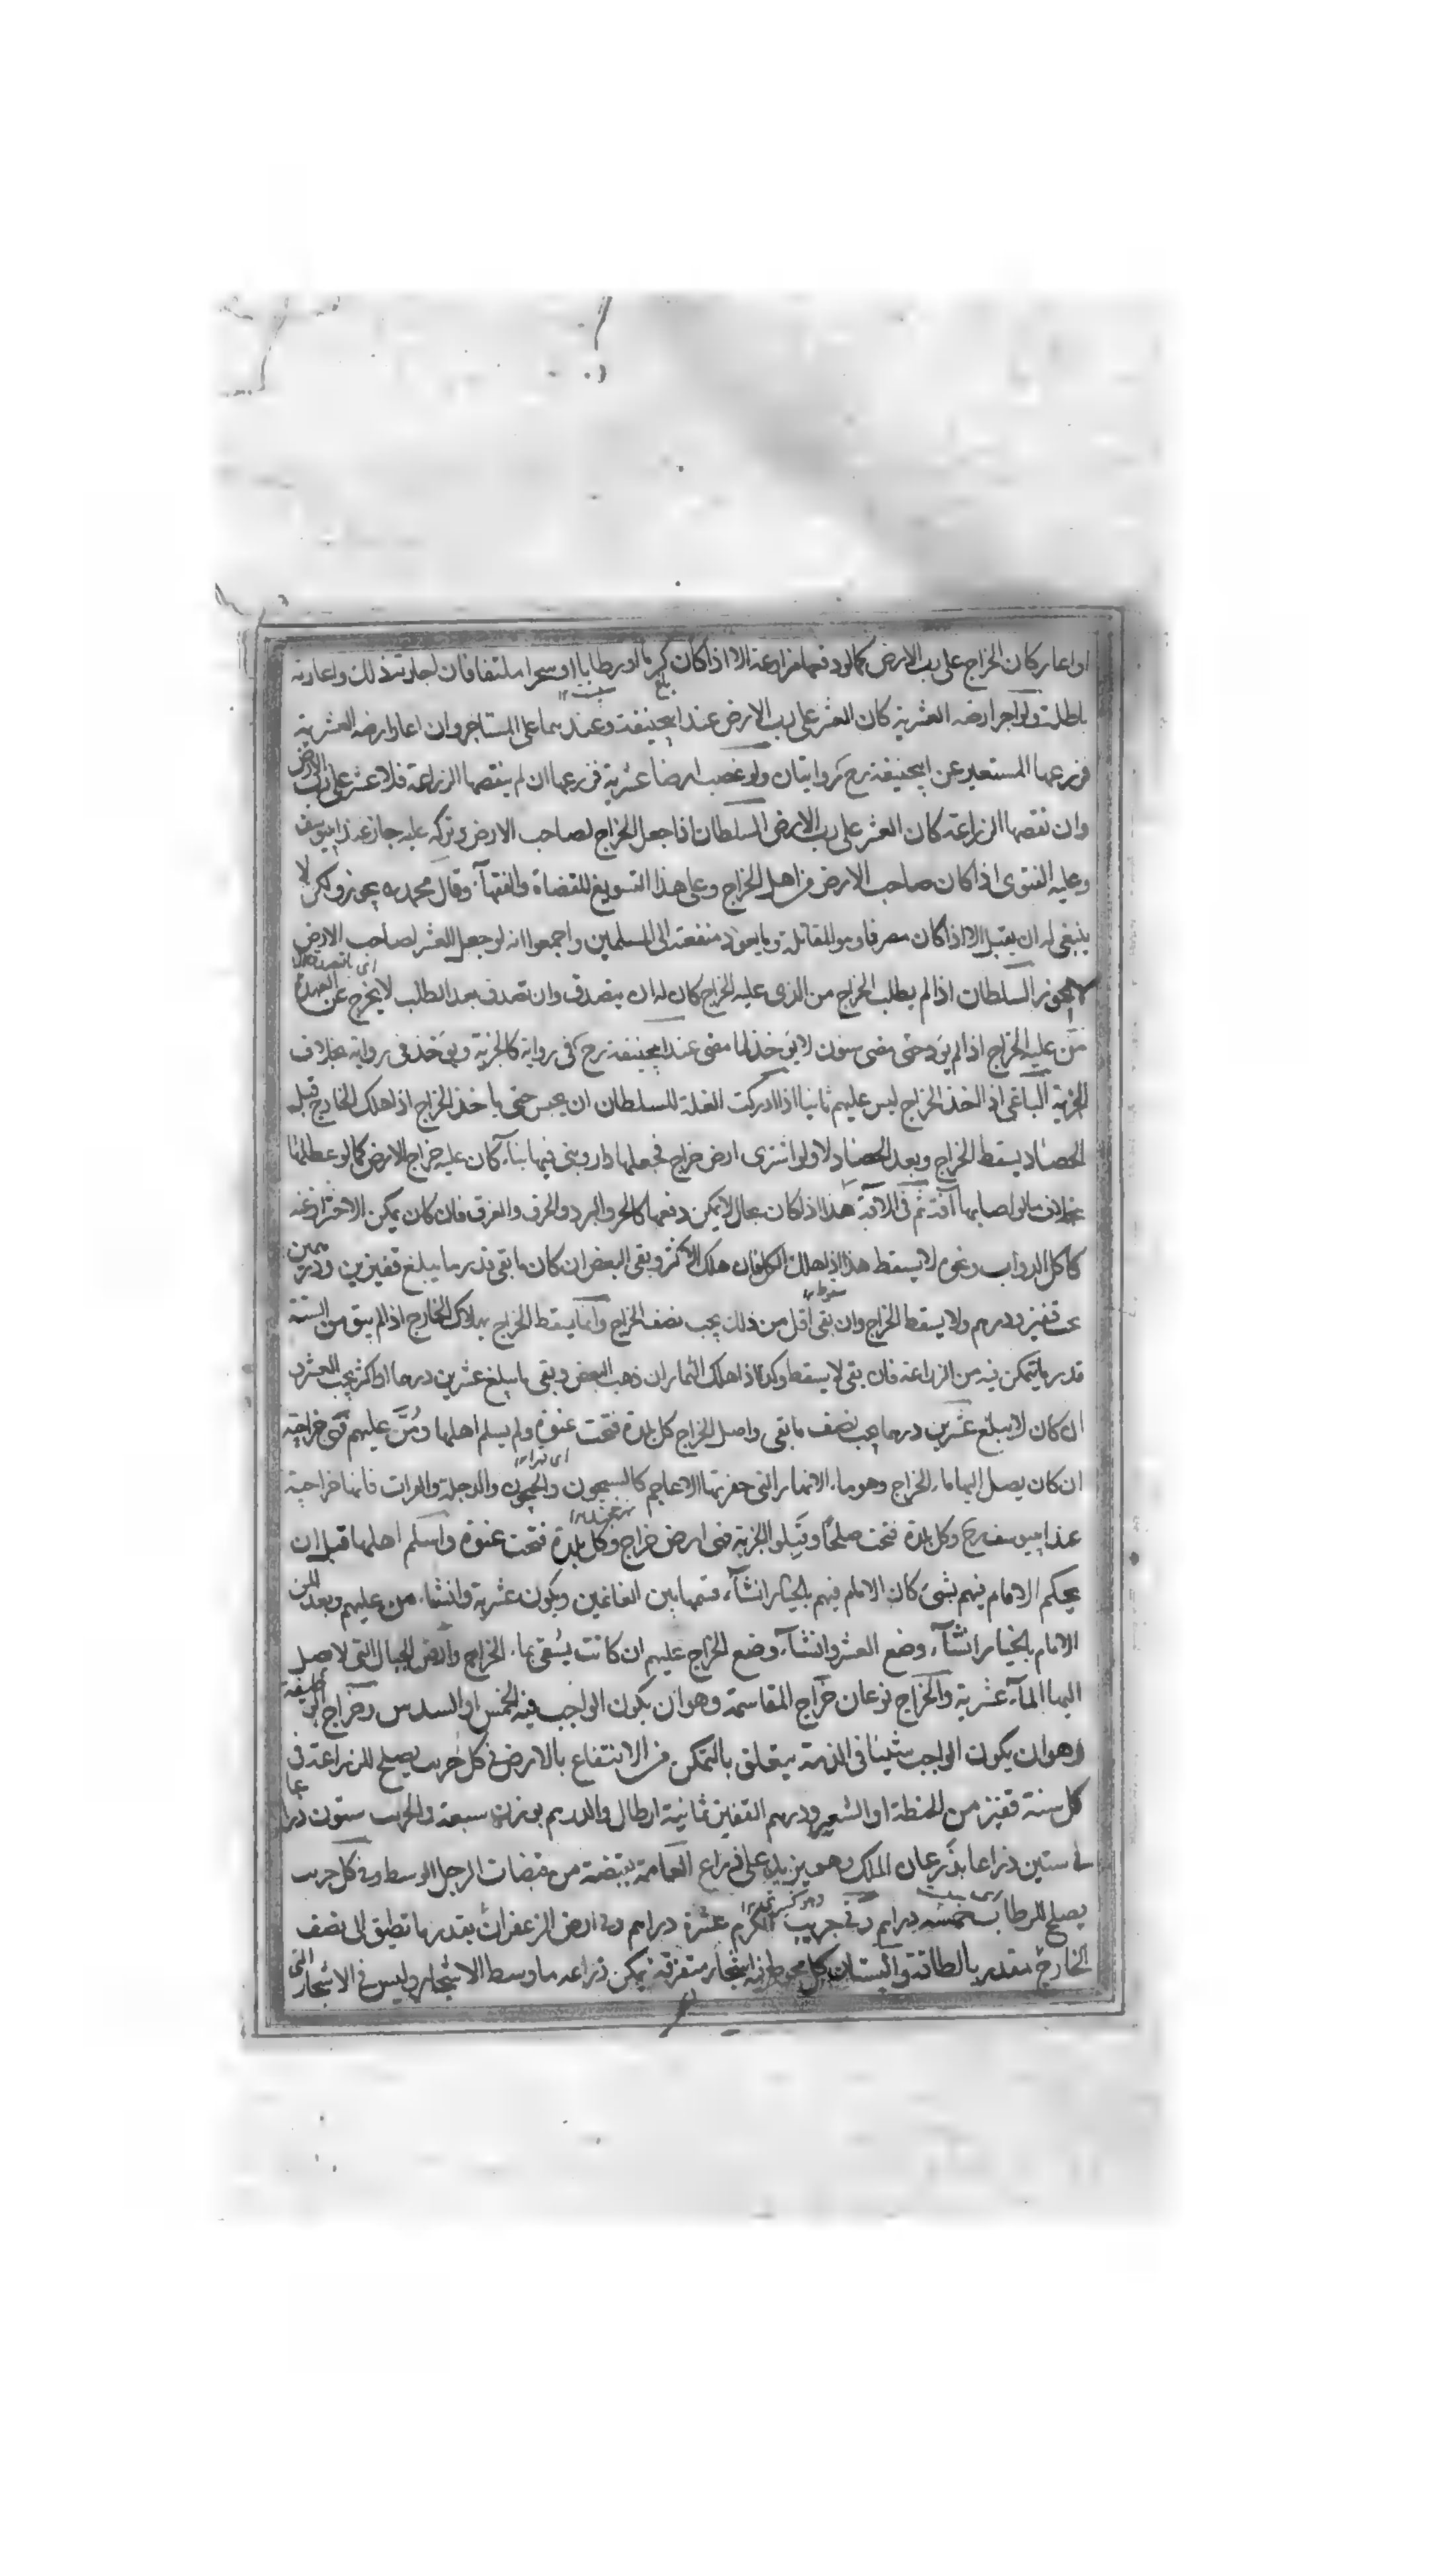 او اعار كان الخراج على رب الارض كما لو دفعها مزارعة الا اذا كان كرما او رطابا او شجرا ملتفا فان اجارته ذلك واعارته
باطلة ولو اجر ارضه العشرية كان العشر على رب الارض عند ابيحنيفة وعندهما على المستاجر وان اعار ارضه العشرية
فزرعها المستعير عن ابيحنيفة رح روايتان ولو غصب ارضا عشرية فزرعها ان لم ينقصها الزراعة فلا عشر على رب الارض
وان نقصها الزراعة كان العشر على رب الارض السلطان اذا جعل الخراج لصاحب الارض وتركه عليه جاز عند ابيوسف
وعليه الفتوى اذا كان صاحب الارض من اهل الخراج وعلى هذا التسويغ للقضاة والفقهآء وقال محمد ره يجوز ولكن لا
ينبغي له ان يقبل الا اذا كان مصرفا وهو المقاتلة وما يعود منفعته الى المسلمين واجمعوا انه لو جعل العشر لصاحب الارض
لا يجوز السلطان اذا لم يطلب الخراج من الذى عليه الخراج كان له ان يتصدق وان تصدق بعد الطلب لا يخرج عن العهدة
من عليه الخراج اذا لم يؤد حتى مضى سنون لا يؤخذ لما مضى عند ابيحنيفة رح في رواية كالجزية ويؤخذ في رواية بخلاف
الجزية الباغى اذا اخذ الخراج ليس عليهم ثانيا اذا ادركت الغلة للسلطان ان يحبس حتى ياخذ الخراج اذا هلك الخارج قبل
الحصاد يسقط الخراج وبعد الحصاد لا ولو اشترى ارض خراج فجعلها دارا وبنى فيها بنآء كان عليه خراج الارض كما لو عطلها
بخلاف ما لو اصابها آفة ثم في الآفة هذا اذا كان بحال لا يمكن دفعها كالحر والبرد والحرق والغرق فان كان يمكن الاحتراز عنه
كاكل الدواب ونحوه لا يسقط هذا اذا هلك الكل فان هلك الاكثر وبقى البعض ان كان ما بقى قدر ما يبلغ قفيزين ودرهمين
يجب قفيز ودرهم ولا يسقط الخراج وان بقى اقل من ذلك يجب نصف الخراج وانما يسقط الخراج بهلاك الخارج اذا لم يبق من السنة
قدر ما يتمكن فيه من الزراعة فان بقى لا يسقط وكذا اذا هلك الثمار ان ذهب البعض وبقى ما يبلغ عشرين درهما او اكثر يجب العشرة
ان كان لا يبلغ عشرين درهما يجب نصف ما بقى واصل الخراج كل بلدة فتحت عنوة ولم يسلم اهلها ومُنَّ عليهم فهى خراجية
ان كان يصل اليها ماء الخراج وهو ماء الانهار التى حفرتها الاعاجم كالسيحون والجيحون والدجلة والفرات فانها خراجية
عند ابيوسف رح وكل بلدة فتحت صلحًا وقبلوا الجزية فهى ارض خراج وكل بلدة فتحت عنوة واسلم اهلها قبل ان
يحكم الامام فيهم بشىء كان الامام فيهم بالخيار ان شآء قسمها بين الغانمين ويكون عشرية وان شاء من عليهم وبعد المن
الامام بالخيار ان شآء وضع العشر وان شآء وضع الخراج عليهم ان كانت يسقى بماء الخراج وارض الجبال التى لا يصل
اليها المآء عشرية والخراج نوعان خراج المقاسمة وهو ان يكون الواجب فيه الخمس او السدس وخراج الوظيفة
وهو ان يكون الواجب شيئا في الذمة يتعلق بالتمكن من الانتفاع بالارض في كل جريب يصلح للزراعة في
كل سنة قفيز من الحنطة او الشعير ودرهم القفيز ثمانية ارطال والدرهم بوزن سبعة والجريب ستون ذراعا
في ستين ذراعا بذرعان الملك وهو يزيد على ذراع العامة بقبضة من قبضات الرجل الوسط وفي كل جريب
يصلح للرطاب خمسة دراهم وفي جريب الكرم عشرة دراهم وفي ارض الزعفران بقدر ما تطيق الى نصف
الخارج مقدر بالطاقة والبستان كل محوط فيه اشجار متفرقة يمكن زراعه ما وسط الاشجار وليس في الاشجار التى